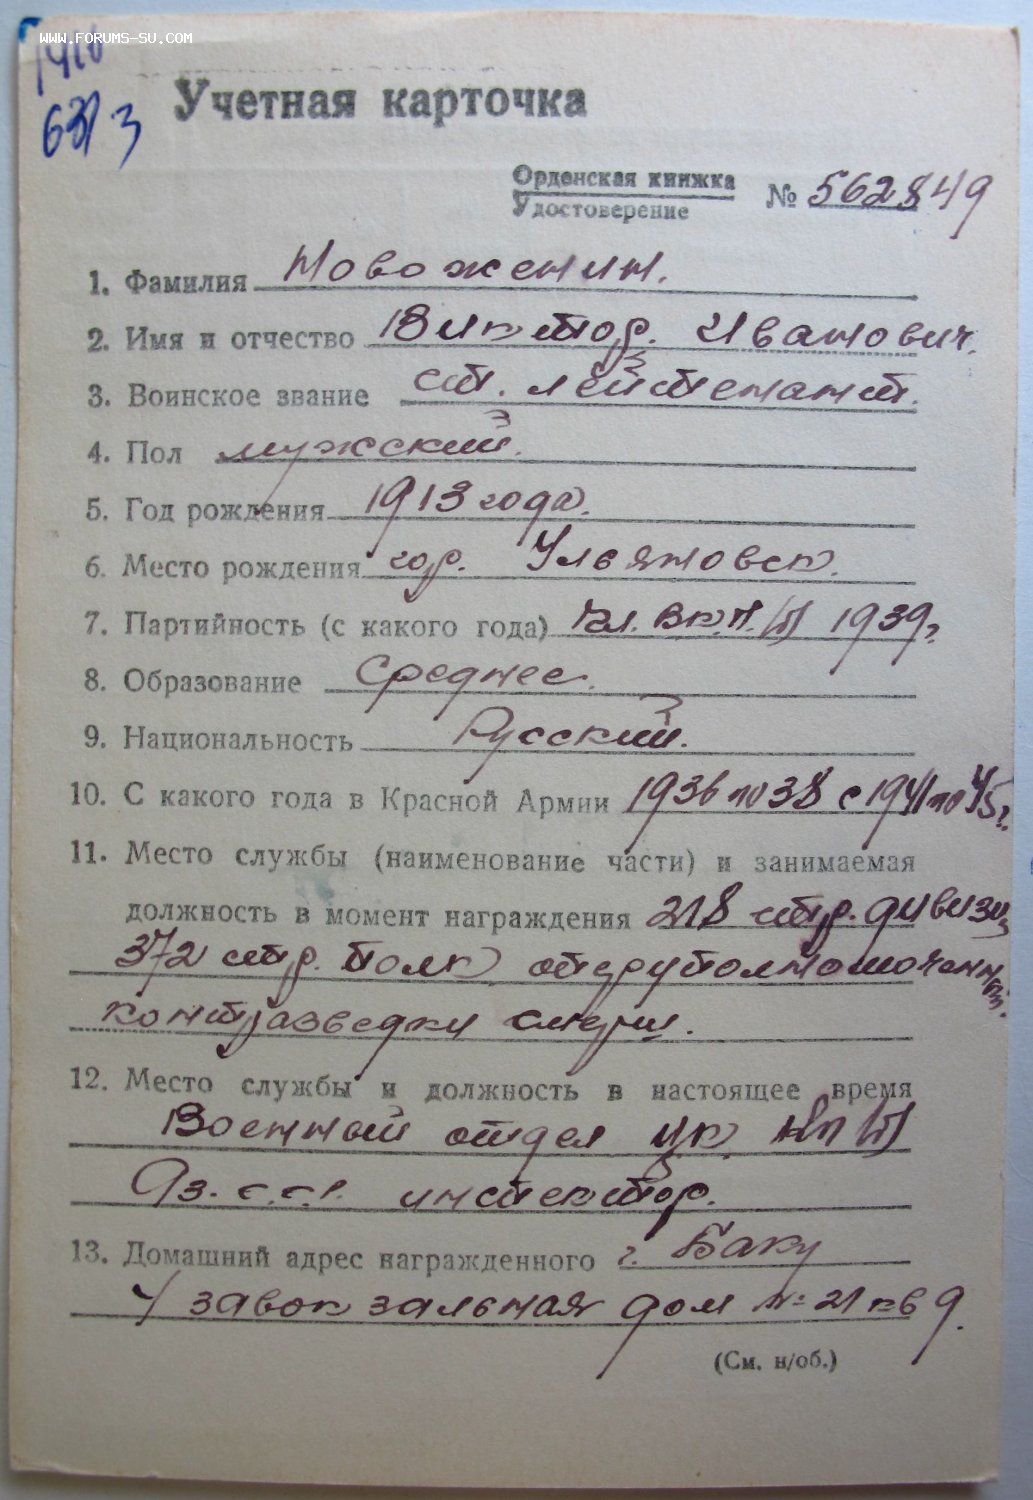 WWW.FORUMS-SU.COM
6313
Учетная карточка
Орденская книжка
Удостоверение
№ 562849
1. Фамилия Новоженин.
2. Имя и отчество Виктор. Иванович.
3. Воинское звание ст. лейтенант.
4. Пол мужский.
5. Год рождения 1913 года.
6. Место рождения гор. Ульяновск.
7. Партийность (с какого года) чл. ВК.П./б/ 1939г.
8. Образование Среднее.
9. Национальность Русский.
10. С какого года в Красной Армии 1936 по 38 с 1941 по 45г.
11. Место службы (наименование части) и занимаемая
должность в момент награждения 218 стр. дивизия
372 стр. полк оперуполномоченный
контразведки смерш.
12. Место службы и должность в настоящее время
Военный отдел ЦК. КП/б/
Аз. с.с.р. инспектор.
13. Домашний адрес награжденного г. Баку
4 завокзальная дом № 21 кв 9.
(См. н/об.)